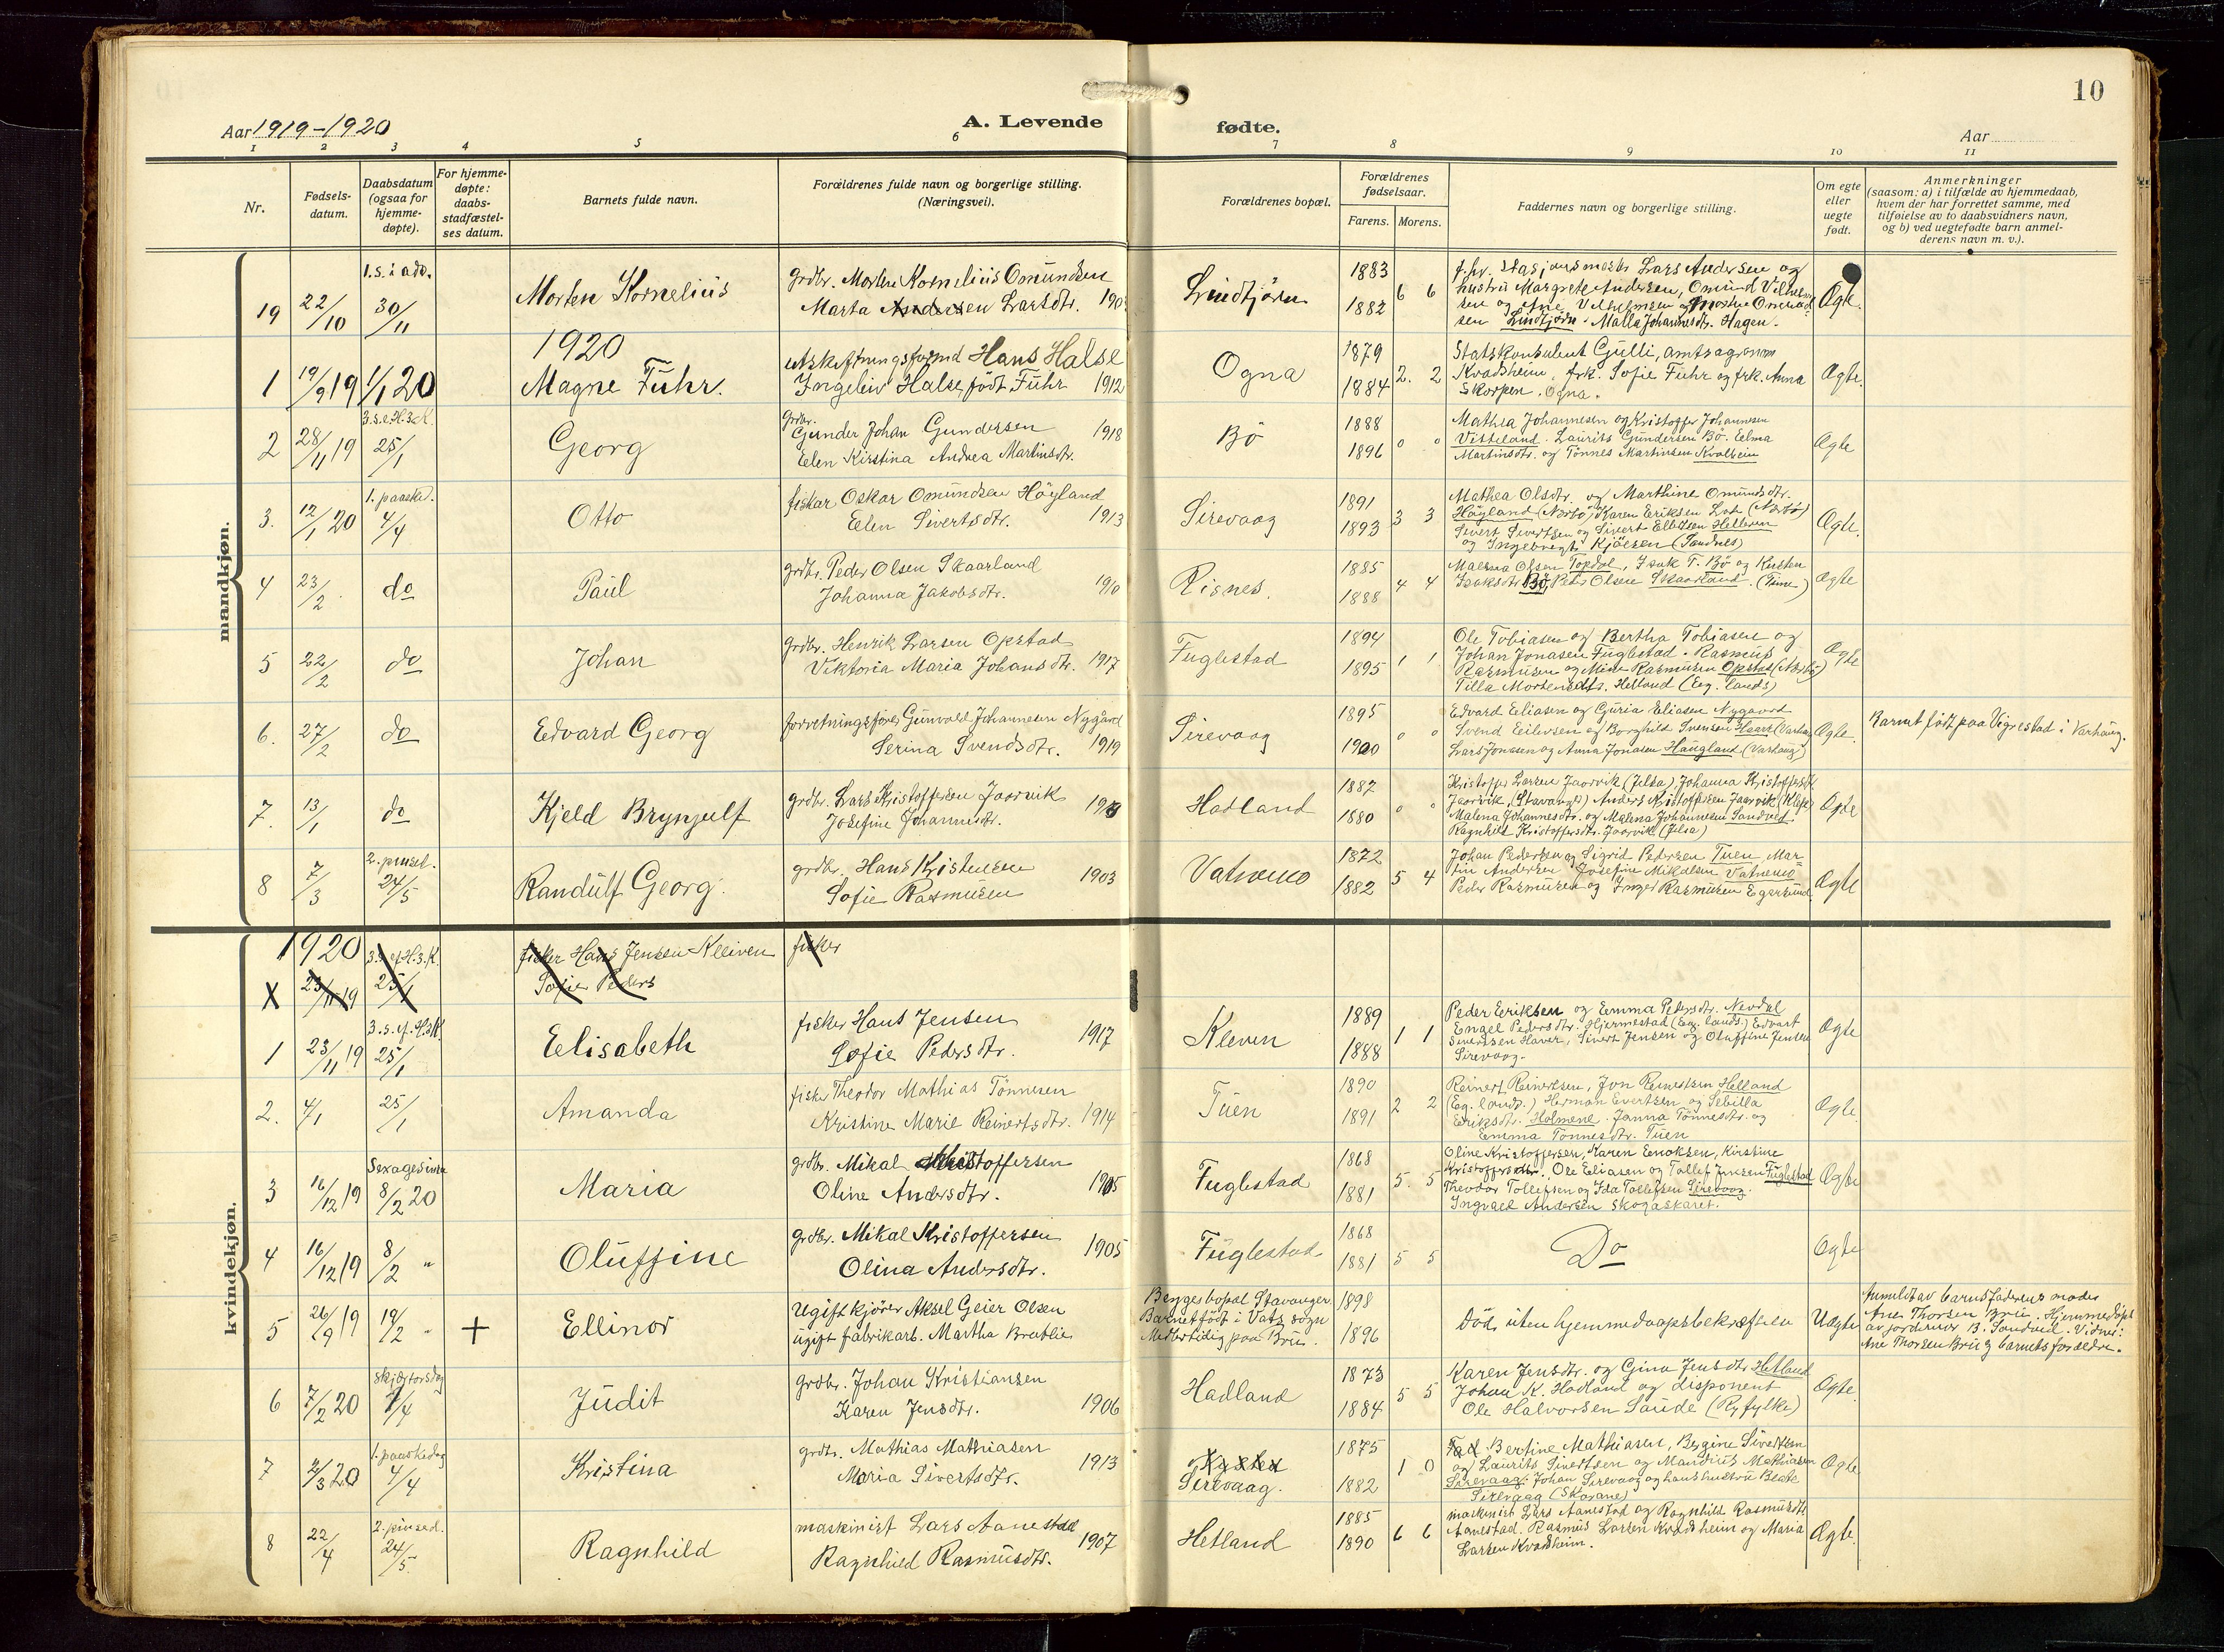 10
Aar 1919-1920
A. Levende fødte.
Aar
1 2 3 4 5 6 7 8 9 10 11
Nr.
Fødsels-
datum.
Daabsdatum
(ogsaa for
hjemme-
døpte).
For hjemme-
døpte:
daabs-
stadfæstel-
ses datum.
Barnets fulde navn.
Forældrenes fulde navn og borgerlige stilling.
(Næringsvei).
Forældrenes bopæl.
Forældrenes
fødselsaar.
Farens. Morens.
Faddernes navn og borgerlige stilling.
Om egte
eller
uegte
født.
Anmerkninger
(saasom: a) i tilfælde av hjemmedaab,
hvem der har forrettet samme, med
tilføielse av to daabsvidners navn,
og b) ved uegtefødte barn anmel-
derens navn m. v.).
mandkjøn.
1. s. i adv.
19 22/10 30/11 Morten Kornelius
grdbr. Morten Kornelius Omundsen
Marta Andersen Larsdtr.
Lindtjörn
1883
1882
6 6
f. hv. stasjonsmester Lars Andersen og
hustru Margrete Andersen, Omund Vilhelm
sen og Ane Vilhelmsen og Morten Omund
sen Lindtjörn. Malla Johannesdtr. Hagen.
Ægte.
1920
1 19/9 19 1/1 20 Magne Fuhr.
utskiftningsformd Hans Halse
Ingeleiv Halse, født Fuhr 1912
Ogna
1879
1884
2. 2
Statskonsulent Gulli, amtsagronom
Kvadsheim, frk. Sofie Fuhr og frk. Anna
Skorpen. Ogna.
Ægte.
3. s. e. H. 3. K.
2 28/11 19 25/1 Georg
grdbr.
Gunder Johan Gundersen 1918
Elen Kirstina Andrea Martinsdtr.
Bö
1888
1896
0 0
Mathea Johannesen og Kristoffer Johannesen
Vitteland. Laurits Gundersen Bö. Elma
Martinsdtr. og Tönnes Martinsen Kvalbein
Ægte
1. paasked.
3. 12/1 20 4/4 Otto
fisker Oskar Omundsen Höyland
Elen Sivertsdtr. 1913
Sirevaag
1891
1893
3 3
Mathea Olsdtr. og Marthine Omundsdtr.
Höyland (Nærbö) Karen Eriksen Lot (Nærbö)
Sivert Sivertsen og Sivert Ellefsen Helleren
og Ingeborgt Kjölsen (Sandnes)
Ægte.
4 23/2 do Paul
grdbr. Peder Olsen Skaarland
Johanna Jakobsdtr. 1910
Risnes.
1885
1888
4 4
Malena Olsen Topdal, Isak T. Bö og Kirsten
Isaksdtr Bö, Peder Olsen Skaarland. (Time)
Ægte
5 22/2 do Johan
grdbr. Henrik Larsen Opstad
Viktoria Maria Johansdtr. 1917
Fuglestad
1894
1895
1 1
Ole Tobiasen og Bertha Tobiasen og
Johan Jonasen Fuglestad. Rasmus
Rasmusen og Mine Rasmusen Opstad (Nærbö)
Tilla Mortensdtr. Helland (Eg. lands)
Ægte
6. 27/2 do Edvard Georg
forretningsfører Gunvald Johannesen Nygård
Serina Svendsdtr. 1919
Sirevaag
1895
1900
0 0
Edvard Eliasen og Guria Eliasen Nygaard
Svend Eilevsen og Borghild Svensen Haar (Varhaug)
Lars Jonsen og Anna Jonasen Haugland (Varhaug)
Ægte.
Barnet född paa Vigrestad i Varhaug.
7. 13/1 do Kjeld Brynjulf
grdbr. Lars Kristoffersen Jaarvik
Josefine Johannesdtr. 1913
Hadland
1887
1880
0 0
Kristoffer Larsen Jaarvik (Jelsa), Johanna Kristoffersdtr
Jaarvik, (Stavanger) Anders Kristoffersen Jaarvik (Klep)
Malena Johannesdtr. og Malena Johannesen Sandved
Ragnhild Kristoffersdtr. Jaarvik (Jelsa)
Ægte
2. pinsed.
8 7/3 24/5 Randulf Georg.
grdbr. Hans Kristensen 1903
Sofie Rasmusen
Vatnemo
1872
1882
5 4
Johan Pedersen og Sigrid Pedersen Tuen, Mar-
tin Andersen, Josefine Mikalsen Vatnemo
Peder Rasmusen og Inger Rasmusen Egersund.
Ægte
kvindekjøn.
1920
3. s. ef. H. 3. K.
X 23/11 19 25/1 fisker Hans Jensen Kleiven
Sofie Peders
fisker
3. s. ef. H. 3 K.
1 23/11 19 25/1 Elisabeth
fisker Hans Jensen 1917
Sofie Pedersdtr.
Kleven
1889
1888
1 1
Peder Eriksen og Emma Pedersdtr. Nevdal
Engel Pedersdtr. Hjermestad (Eg. lands.) Edvart
Sivertsen Haver, Sivert Jensen og Oluffine Jensen
Sirevaag.
Ægte
2. 4/1 25/1 Amanda
fisker Theodor Mathias Tönnesen
Kristine Marie Reinertsdtr. 1914
Tuen
1890
1891
2 2
Reinert Reinertsen, Jon Reinertsen Helland
(Eg. lands.) Herman Evertsen og Sebilla
Eriksdtr. Holmene. Janna Tönnesdtr. og
Emma Tönnesdtr. Tuen
Ægte
Sexagesima
3 16/12 19 8/2 20 Maria
grdbr. Mikal Kristoffersen
Oline Andersdtr. 1905
Fuglestad
1868
1881
5. 5
Oline Kristoffersen, Karen Enoksen, Kirstine
Kristoffersdtr. Ole Eliasen og Tollef Jensen Fuglestad
Theodor Tollefsen og Ida Tollefsen Sirevaag.
Ingvald Andersen Skogaskaret.
Ægte
4 16/12 19 8/2 " Oluffine
grdbr. Mikal Kristoffersen 1905
Olina Andersdtr.
Fuglestad
1868
1881
5 5
Do
Ægte
5 26/9 19 19/2 " + Ellinor
Ugift kjører Aksel Geier Olsen
ugift fabrikarb. Martha Bratlie
Begges bopæl Stavanger.
Barnet født i Vats sogn
Midlertidig paa Bru.
1898
1896
Död, uten hjemmedaapsbekræftelse
Uægte
Anmeldt av barnefaderens moder
Ane Thorsen Bru. Hjemmedöpt
av jordmor B. Sandved. Vidner:
Ane Thorsen Bru og barnets forældre.
skjærtorsdag
6 7/2 20 1/4 Judit
grdbr. Johan Kristiansen
Karen Jensdtr. 1906
Hadland
1873
1884
5 5
Karen Jensdtr. og Gina Jensdtr Hetland
Johan K. Hadland og disponent
Ole Halvorsen Saude (Ryfylke)
Ægte.
1. paaskedag
7 2/3 20 4/4 Kristina
grdbr. Mathias Mathiasen 1913
Maria Sivertsdtr.
Sirevaag.
1875
1882
1 0
Bertine Mathiasen, Bergine Sivertsen
og Laurits Sivertsen og Mandius Mathiasen
Sirevaag. Johan Sirevaag og hans hustru Beate
Sirevaag (Skorane)
Ægte
2. pinsed.
8 22/4 24/5. Ragnhild
maskinist Lars Aanestad
Ragnhild Rasmusdtr. 1907
Hetland
1885
1890
6 6
maskinist Lars Aanestad og Ragnhild Rasmusdtr.
Aanestad. Rasmus Larsen Kvadsheim og Maria
Larsen Kvadsheim.
Ægte.